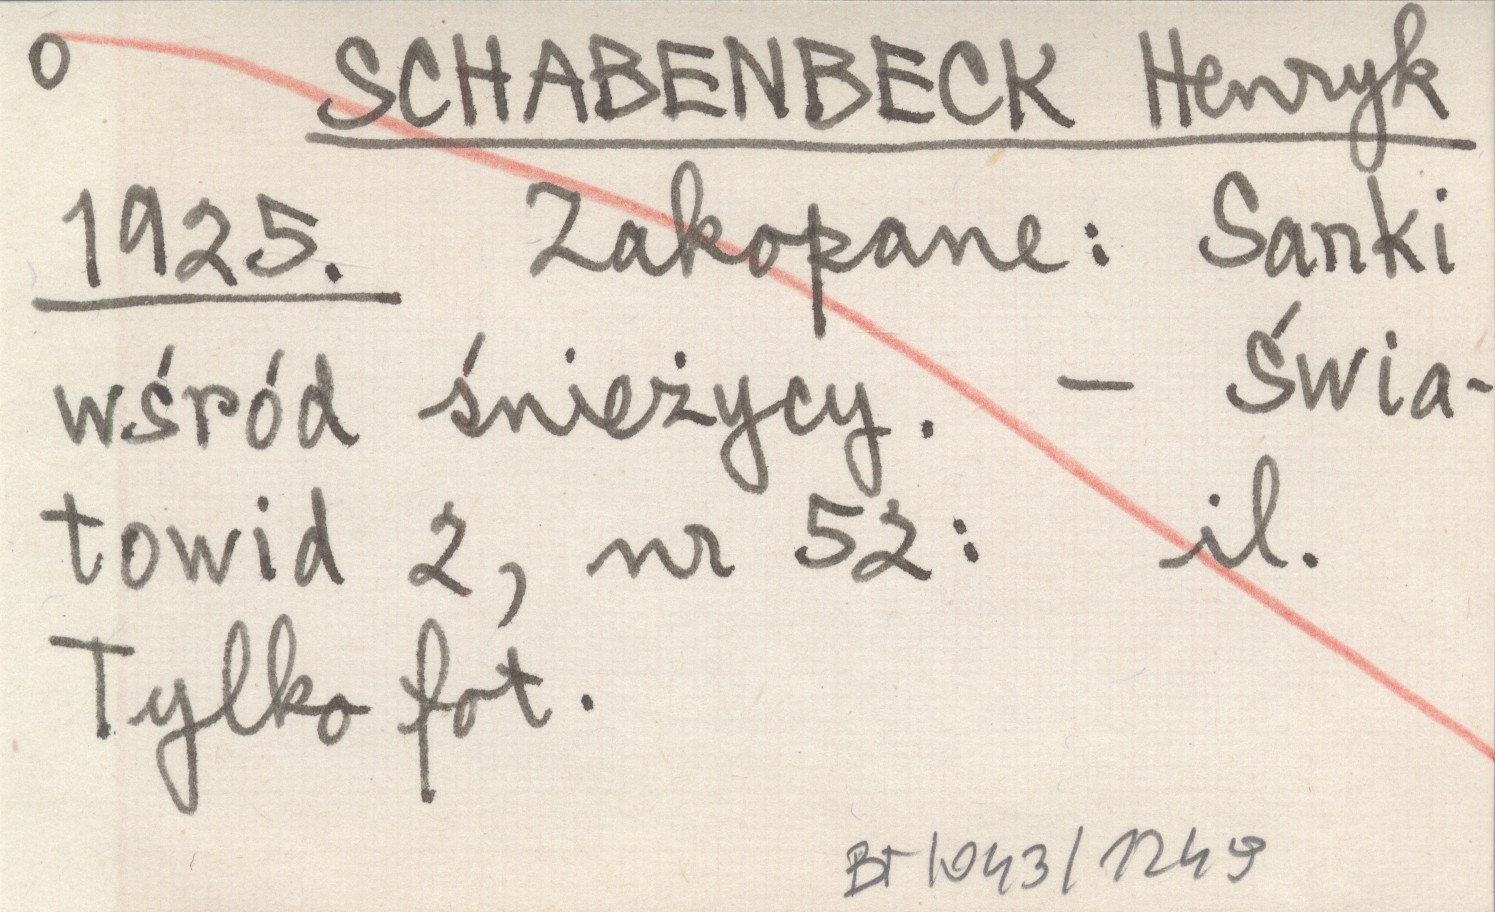 o SCHABENBECK Henryk
1925. Zakopane: Sanki
wśród śnieżycy. – Świa-
towid 2, nr 52: il.
Tylko fot.
BT/043/1249